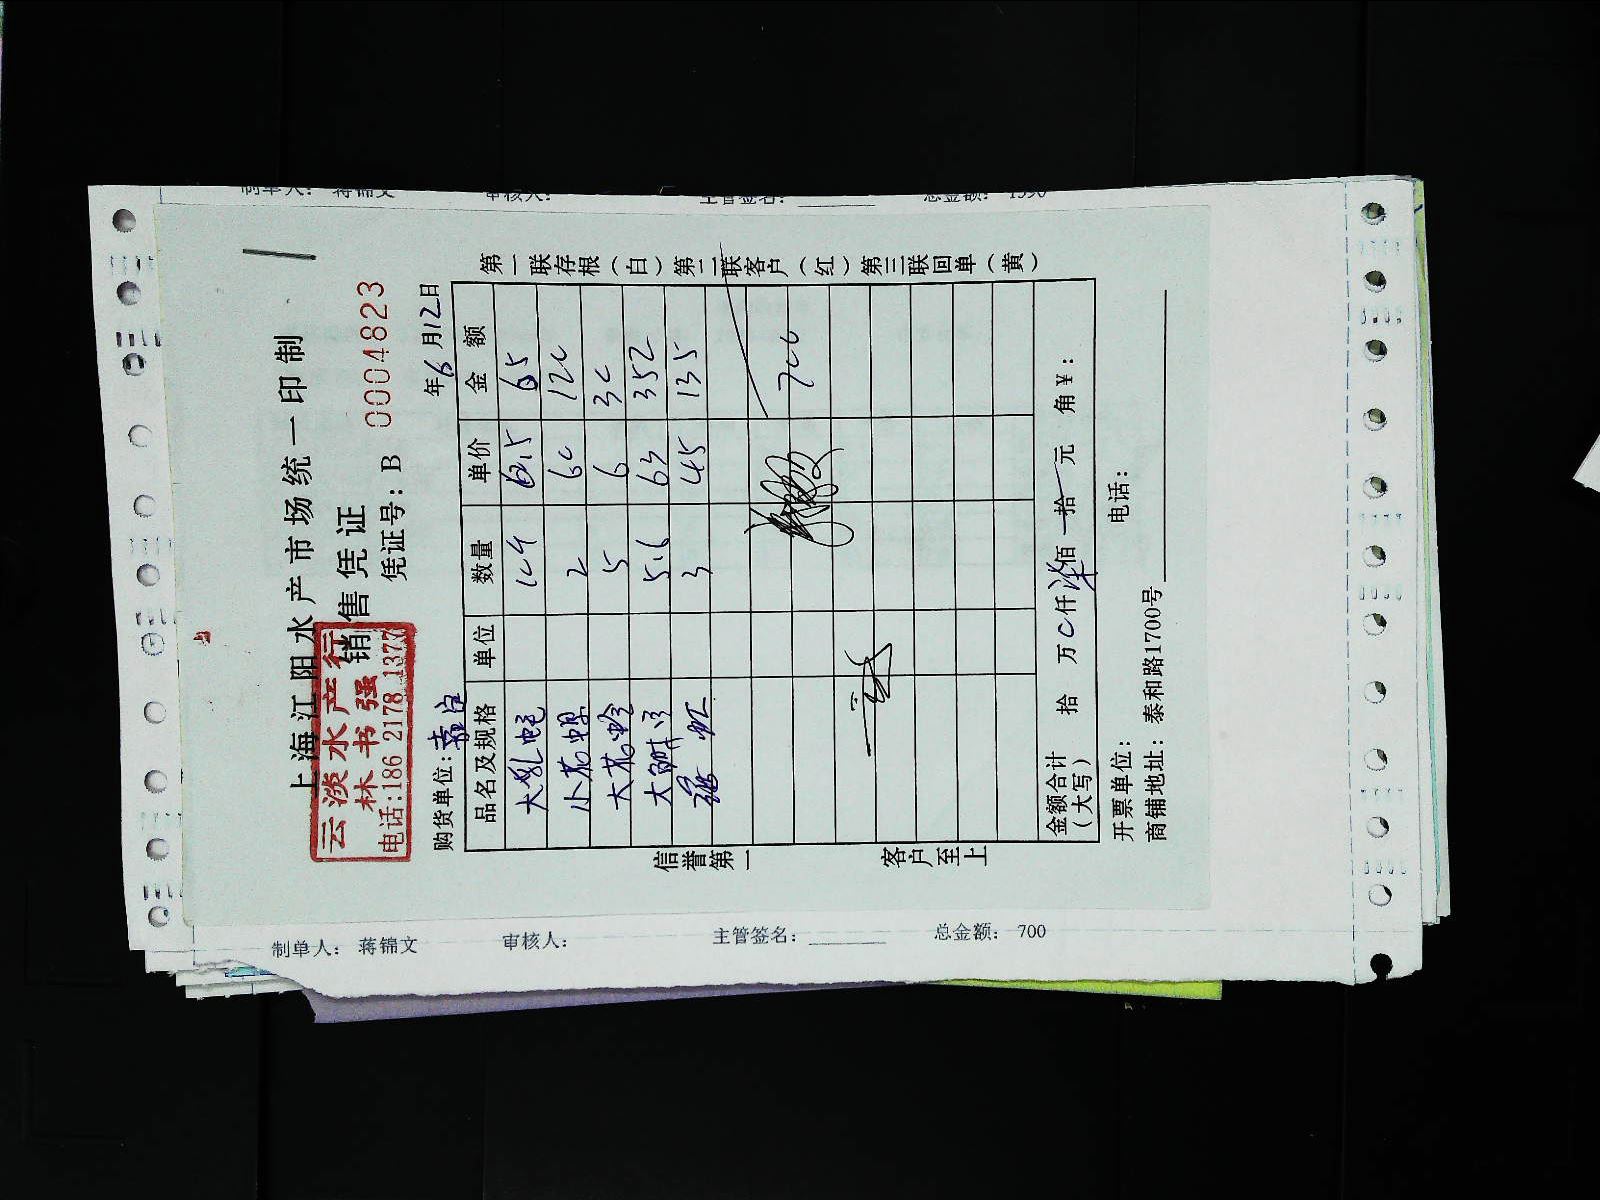 制单人： 蒋锦文 审核人： 主管签名： 总金额： 1590
上海江阳水产市场统一印制
销售凭证
云淡水产行
林书强
电话:186 2178 1377
凭证号：B 0004823
购货单位: 年6月12日
品名及规格 单位 数量 单价 金额
大 65
小花 2 60 120
大花 5 6 30
大 5.6 63 352
虾 3 45 135
700
金额合计（大写） 拾 万 0 仟 柒 佰 拾 元 角 ¥：
开票单位： 电话：
商铺地址：泰和路1700号
第一联存根（白）第二联客户（红）第三联回单（黄）
信誉第一 客户至上
制单人： 蒋锦文 审核人： 主管签名： 总金额： 700